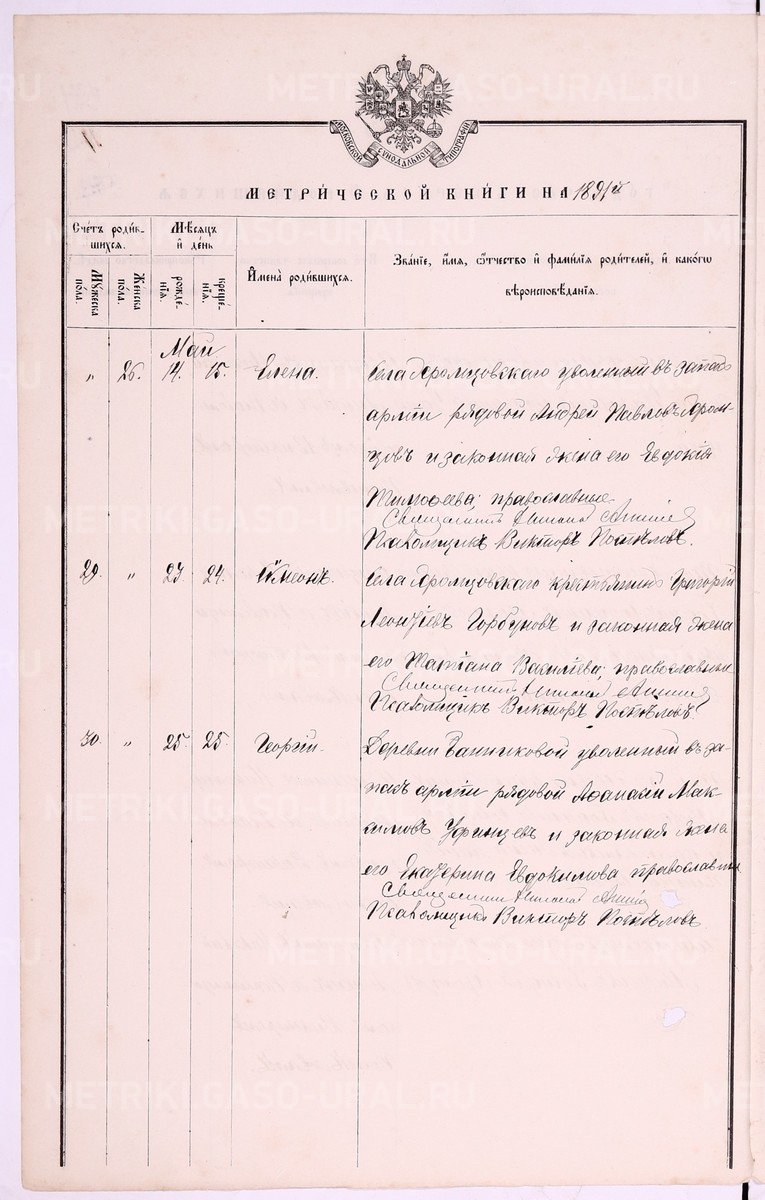 МОСКОВСКОЙ СѴНОДАЛЬНОЙ ТИПОГРАФІИ
МЕТРИ́ЧЕСКОЙ КНИ́ГИ НА 1891й
Сче́тъ роди́вшихсѧ.
Мѣ́сѧцъ и҆ де́нь
И҆мена̀ роди́вшихсѧ.
Зва́нїе, и҆́мѧ, ѻ҆́тчество и҆ фами́лїѧ роди́телей, и҆ како́гѡ вѣроисповѣ́данїѧ.
Мꙋ́жеска по́ла.
Же́нска по́ла.
рожде́нїѧ.
креще́нїѧ.
Май
„ 26. 14. 15. Елена. Села Яромцовскаго уволенный въ запасъ
арміи рядовой Андрей Павловъ Яром-
цовъ и законная жена его Евдокія
Тимофеева; православные
Священникъ
Псаломщикъ Викторъ Поспѣловъ.
29. „ 23. 24. Сѷмеонъ. Села Яромцовскаго крестьянинъ Григорій
Леонтіевъ Горбуновъ и законная жена
его Татіана Василіева; православные
Священникъ
Псаломщикъ Викторъ Поспѣловъ.
30. „ 25. 25. Георгій. Деревни Банниковой уволенный въ за-
пасъ арміи рядовой Афанасій Мак-
симовъ Уфинцевъ и законная жена
его Екатерина Евдокимова православные
Священникъ
Псаломщикъ Викторъ Поспѣловъ.
METRIKI.GASO-URAL.RU